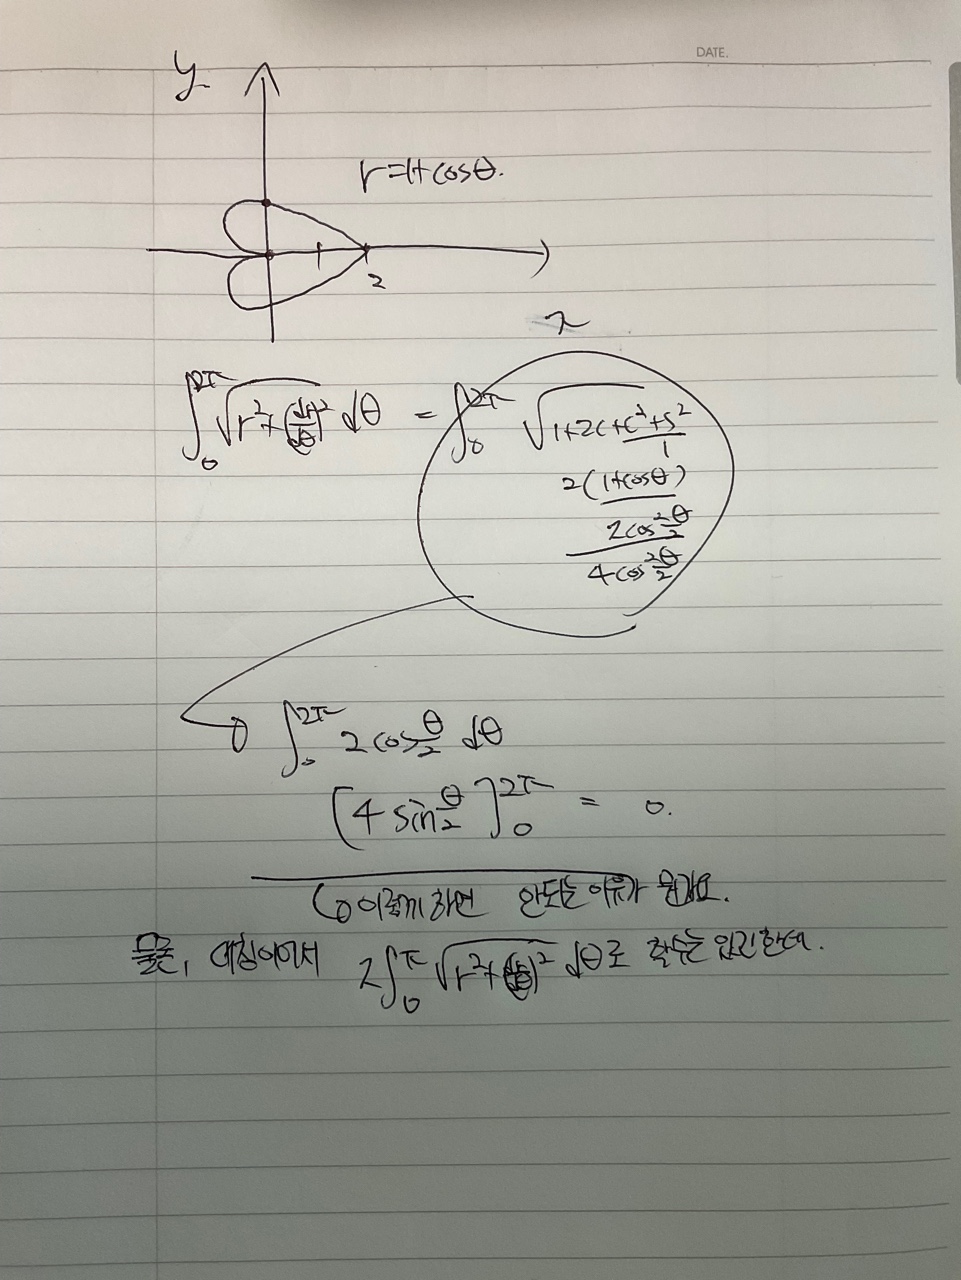 DATE.
y
r=1+cosθ.
2
x
∫₀^2π √(r²+(dr/dθ)²) dθ = ∫₀^2π √(1+2c+c²+s²)
1
2(1+cosθ)
2cos²θ/2
4cos²θ/2
∫₀^2π 2cosθ/2 dθ
[4 sinθ/2]₀^2π = 0.
이렇게 하면 안되는 이유가 뭔가요.
물론, 대칭이어서 2∫₀^π √(r²+(dr/dθ)²) dθ로 할수는 있긴한데.